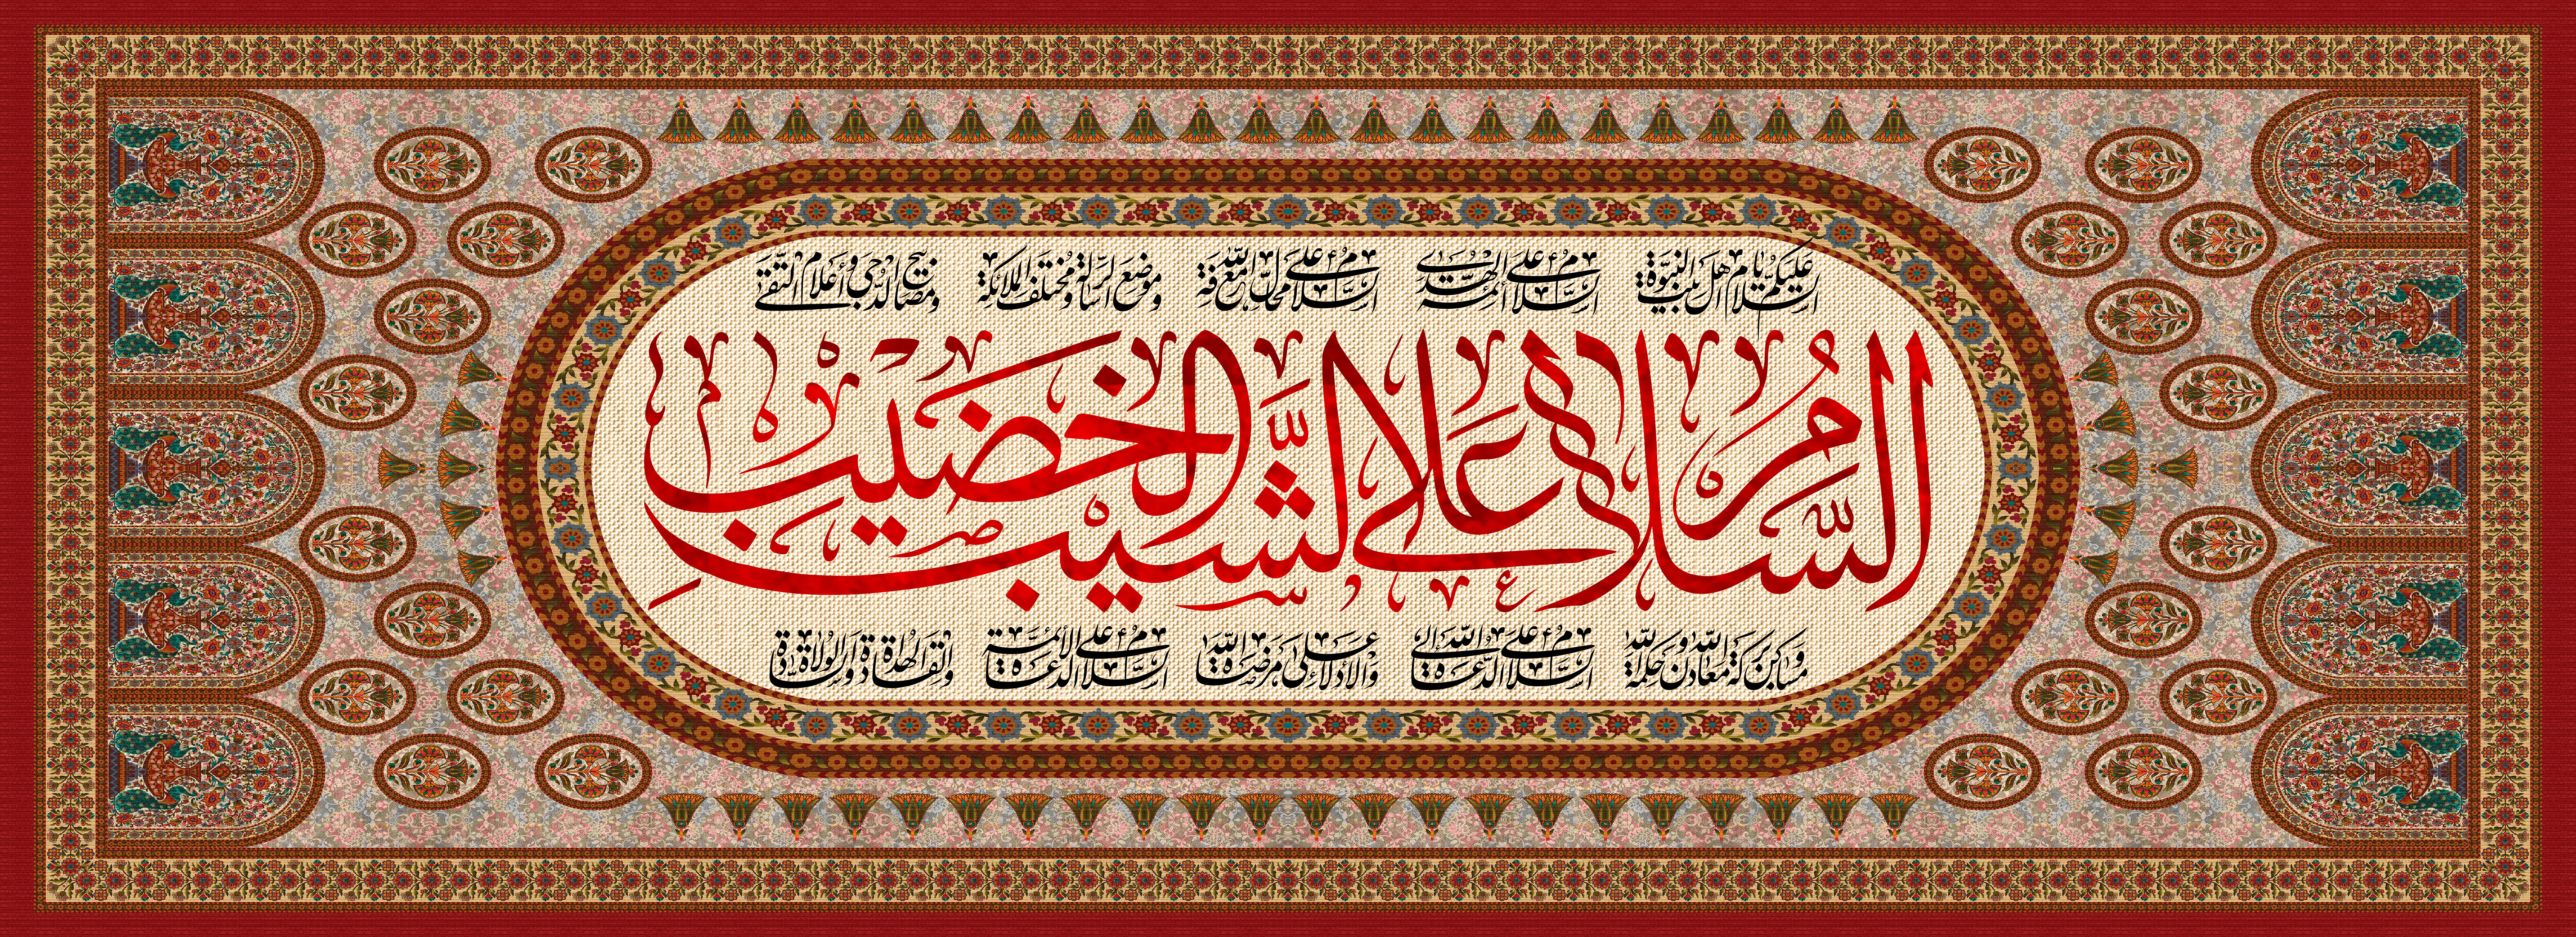 السلام عليكم يا أهل بيت النبوة السلام على أئمة الهدى السلام على محال معرفة الله وموضع الرسالة ومختلف الملائكة ومصابيح الدجى وأعلام التقى
السَّلامُ عَلَى الشَّيبِ الخَضيبِ
ومساكن بركة الله ومعادن حكمة الله السلام على الدعاة إلى الله والأدلاء على مرضاة الله السلام على الأئمة الدعاة والقادة الهداة والسادة الولاة